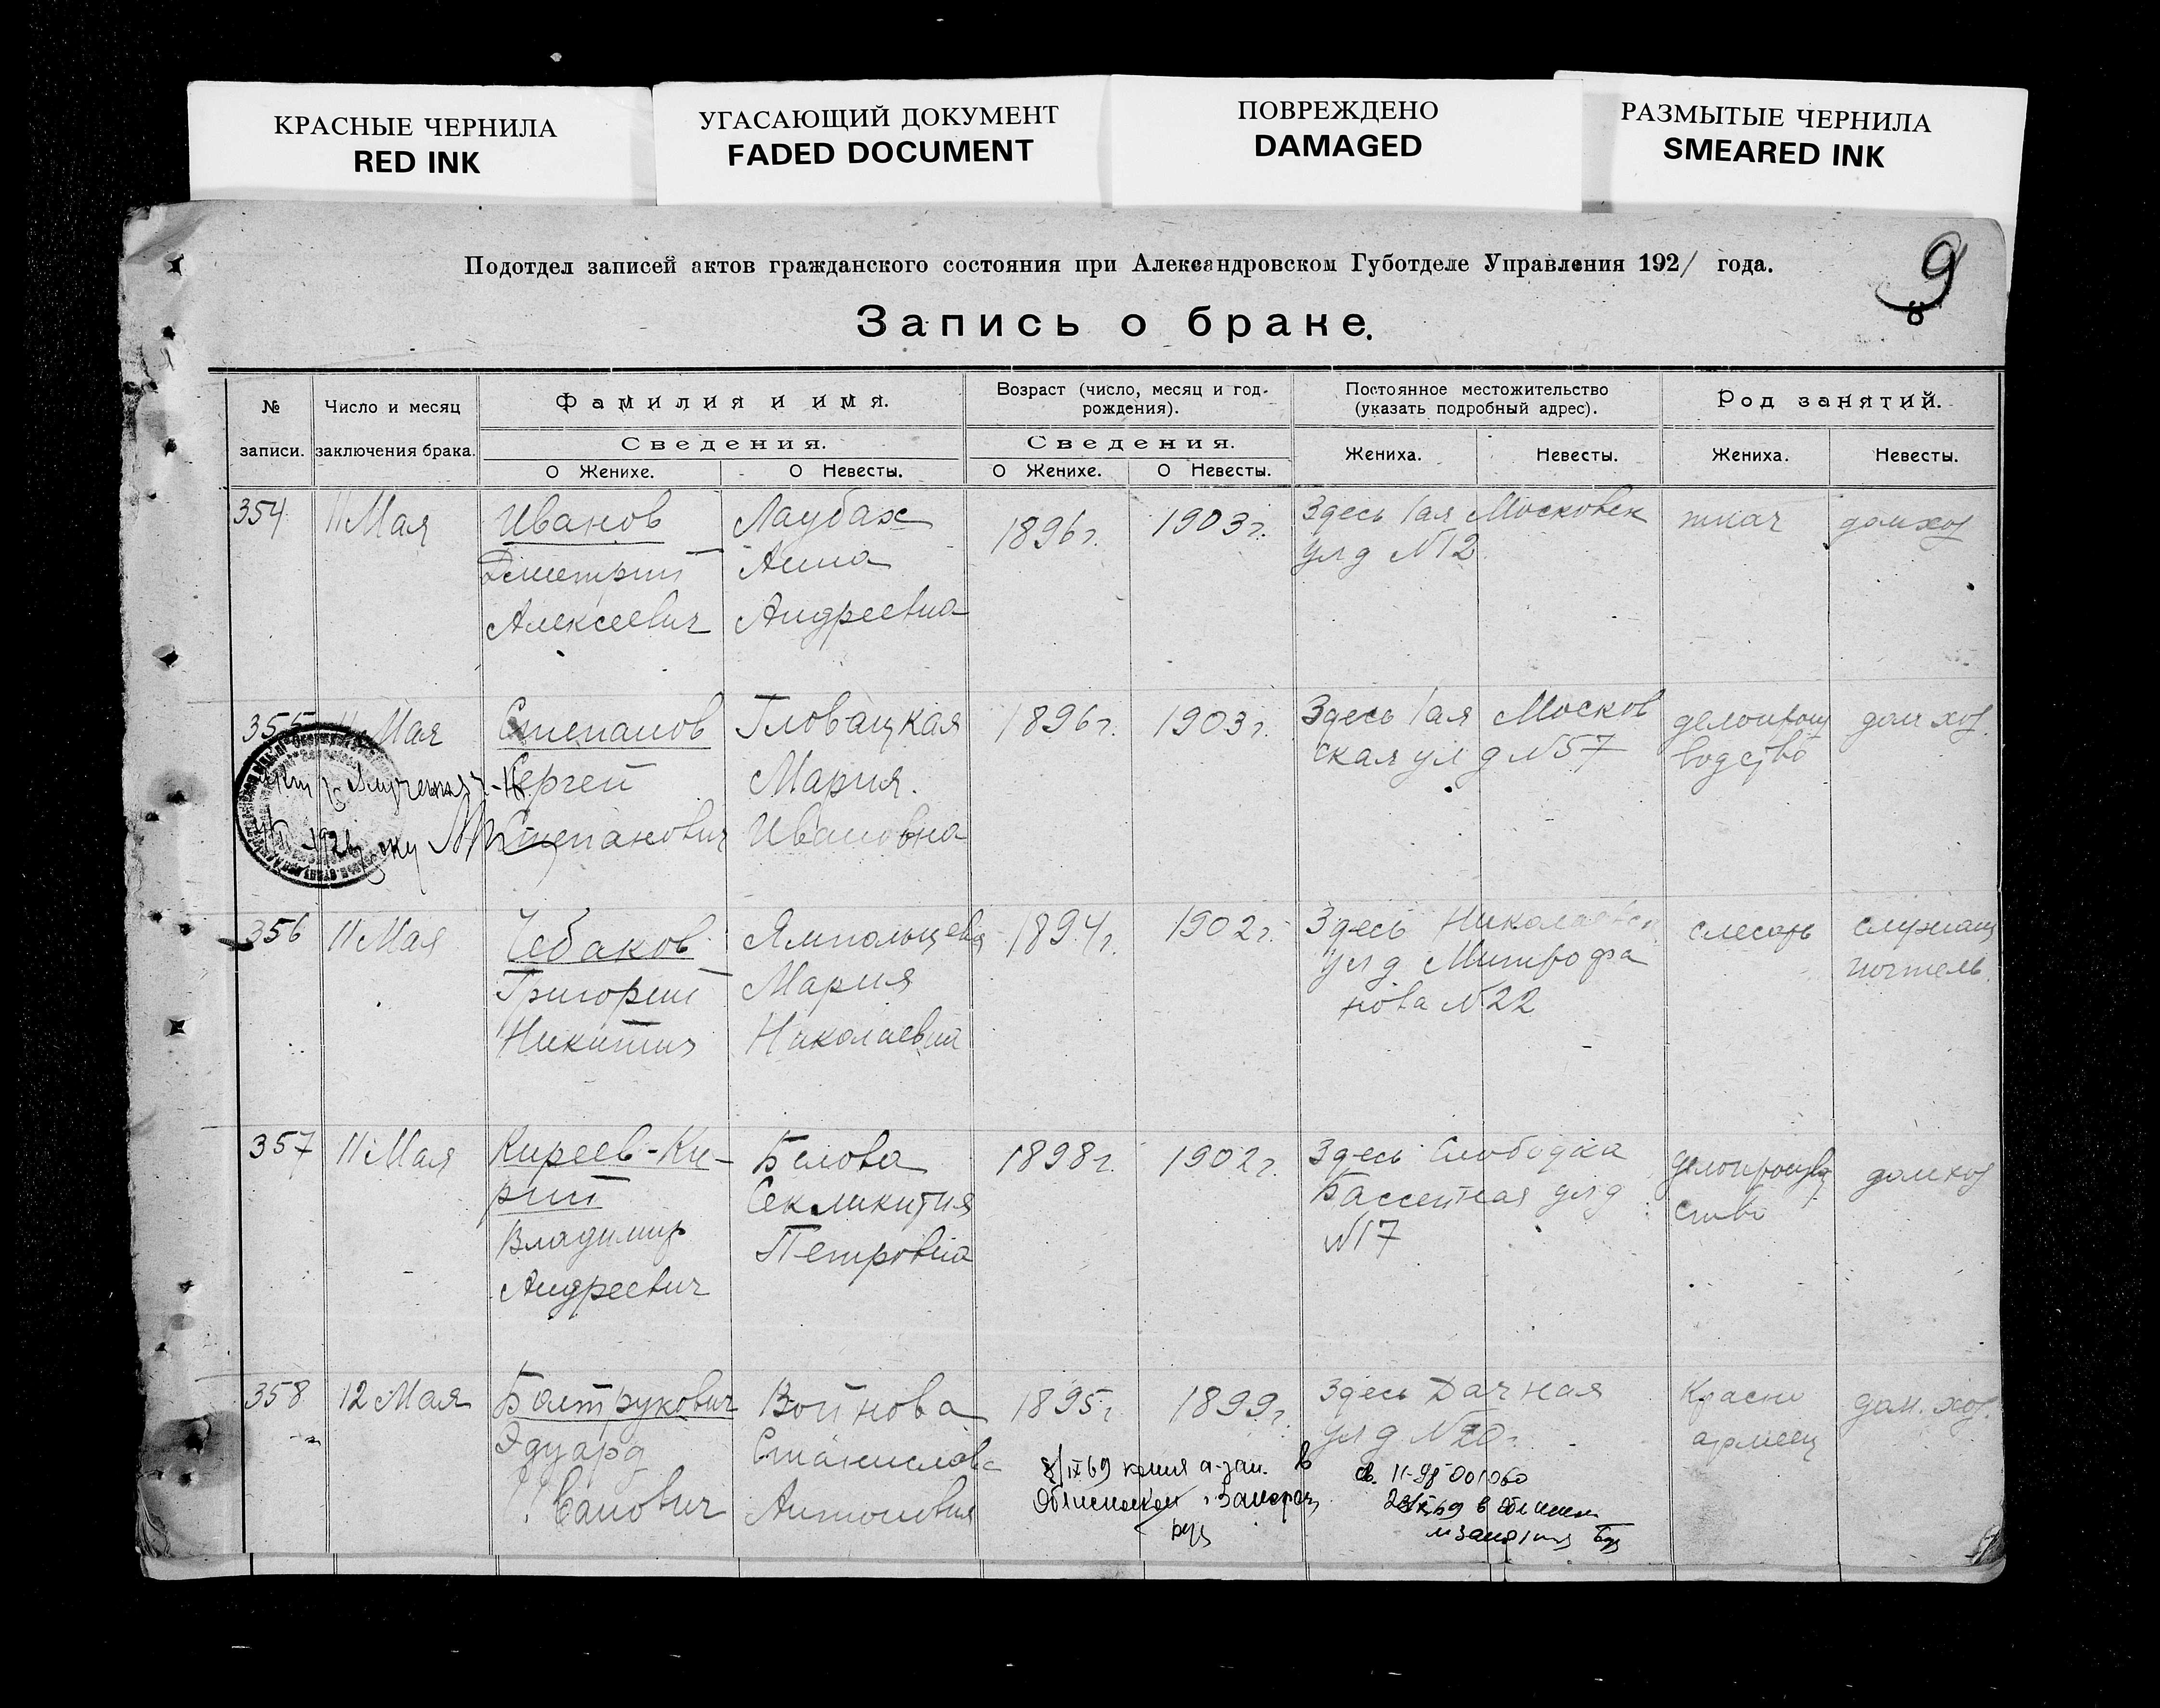 КРАСНЫЕ ЧЕРНИЛА
RED INK
УГАСАЮЩИЙ ДОКУМЕНТ
FADED DOCUMENT
ПОВРЕЖДЕНО
DAMAGED
РАЗМЫТЫЕ ЧЕРНИЛА
SMEARED INK
9
8
Подотдел записей актов гражданского состояния при Александровском Губотделе Управления 192/ года.
Запись о браке.
№ записи.
Число и месяц заключения брака.
Фамилия и имя.
Сведения.
О Женихе.
О Невесты.
Возраст (число, месяц и год-
рождения).
Сведения.
О Женихе.
О Невесты.
Постоянное местожительство
(указать подробный адрес).
Жениха.
Невесты.
Род занятий.
Жениха.
Невесты.
354 11 Мая
Иванов
Дмитрий
Алексеевич
Лаубах
Анна
Андреевна
1896г. 1903г.
Здесь 1ая Московск
ул д №12
ткач
домхоз
355 11 Мая
Степанов
Сергей
Степанович
Гловацкая
Мария.
Ивановна
1896г. 1903г.
Здесь 1ая Москов
ская ул д №57
делопроиз
водство
дом хоз.
356 11 Мая
Чебаков
Григорий
Никитич
Мария
Николаевна
1894г. 1902г.
Здесь Николаевск
ул д Митрофа
нова №22
слесарь
служащ
357 11 Мая
Киреев-Ки-
рий
Владимир
Андреевич
Белова
Секликития
Петровна
1898г. 1902г.
Здесь Слободка
Бассейная ул д
№17
делопроизвод
ство
домхоз
358 12 Мая
Болтрукович
Эдуард
Иванович
Войнова
Станислава
Антоновна
1895г. 1899г.
Здесь Дачная
ул д №20.
Красно
армеец
дом. хоз.
8/IX 69 копия а-зап. в